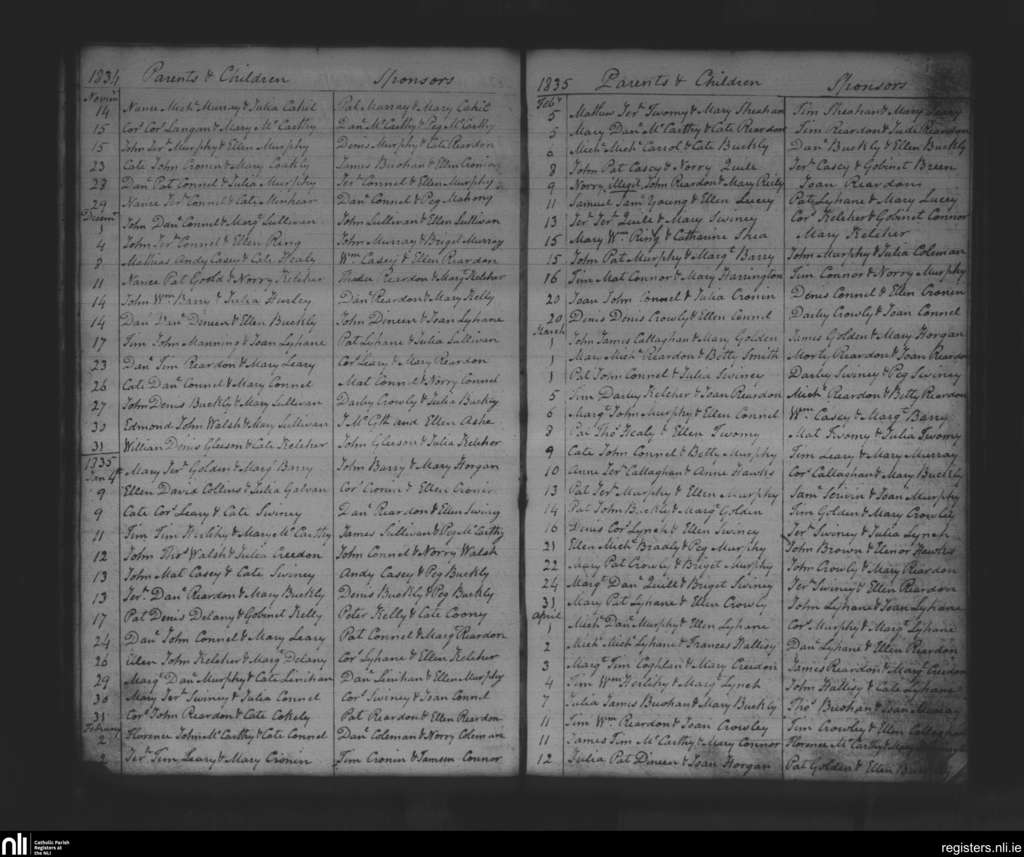 1834 Parents & Children Sponsors
Novem
14 Nance Michl Murray & Julia Cahil Pat Murray & Mary Cahil
15 Cors Cors Langan & Mary McCarthy Danl McCarthy & Peg McCarthy
15 John Jers Murphy & Ellen Murphy Denis Murphy & Cate Reardon
23 Cate John Cronen & Mary Coakly James Buohan & Ellen Cronin
23 Danl Pat Connel & Julia Murphy Jers Connel & Ellen Murphy
29 Nance Jers Connel & Cate Danl Connel & Peg Mahony
Decemr
1 John Danl Connel & Margt Sullivan John Sullivan & Ellen Sullivan
4 John Jers Connel & Ellen Ring John Murray & Briget Murray
8 Mathias Andy Casey & Cate Healy Wm Casey & Ellen Reardon
11 Nance Pat & Norry Kelcher Reardon & Mary Kelcher
14 John Wm Barry & Julia Hurley Danl Reardon & Mary Kelly
14 Danl Danl Dineen & Ellen Buckly John Dineen & Joan Lyhane
17 Tim John Manning & Joan Lyhane Pat Lyhane & Julia Sullivan
23 Danl Tim Reardon & Mary Leary Cors Leary & Mary Reardon
26 Cate Danl Connel & Mary Connel Mat Connel & Norry Connel
27 John Denis Buckly & Mary Sullivan Darby Crowly & Julia Buckly
30 Edmond John Walsh & Mary Sullivan and Ellen Ashe
31 William Denis Gleeson & Cate Kelcher John Gleeson & Julia Kelcher
1835
Jan 4th Mary Jers Golden & Margt Barry John Barry & Mary Horgan
9 Ellen David Collins & Julia Galvan Cors Cronin & Ellen Cronin
9 Cate Cors Leary & Cate Swiney Danl Reardon & Ellen Swiny
11 Tim Tim Herlihy & Mary McCarthy James Sullivan & Peg McCarthy
12 John Thos Walsh & Julia Creedon John Connel & Norry Walsh
13 John Mat Casey & Cate Swiney Andy Casey & Peg Buckly
13 Jers Danl Reardon & Mary Buckly Denis Buckly & Peg Buckly
17 Pat Denis Delany & Gobinet Kelly Peter Kelly & Cate Coony
24 Danl John Connel & Mary Leary Pat Connel & Margt Reardon
26 Ellen John Kelcher & Margt Delany Cors Lyhane & Ellen Kelcher
29 Margt Danl Murphy & Cate Linihan Danl Linihan & Ellen Murphy
30 Mary Jers Swiney & Julia Connel Cors Swiney & Joan Connel
31 Cors John Reardon & Cate Cokely Pat Reardon & Ellen Reardon
February
2 Florence John McCarthy & Cate Connel Danl Coleman & Norry Coleman
2 Jers Tim Leary & Mary Cronin Tim Cronin & Connor
1835 Parents & Children Sponsors
Feby
5 Mathew Jers Twomy & Mary Sheahan Tim Sheahan & Mary Leary
5 Mary Danl McCarthy & Cate Reardon Tim Reardon & Jude Reardon
6 Michl Michl Carrol & Cate Buckly Danl Buckly & Ellen Buckly
8 John Pat Casey & Norry Quile Jers Casey & Gobinet Breen
9 Norry illegit John Reardon & Mary Reily Joan Reardons
11 Samuel Saml Young & Ellen Lucey Pat Lyhane & Mary Lucey
13 Jers Jers Quile & Mary Swiney Cors Kelcher & Gobinet Connor
15 Mary Wm Ring & Catharine Shea Mary Kelcher
15 John Pat Murphy & Margt Barry John Murphy & Julia Coleman
16 Tim Mat Connor & Mary Harrington Tim Connor & Norry Murphy
20 Joan John Connel & Julia Cronin Denis Connel & Ellen Cronen
20 Denis Denis Crowly & Ellen Connel Darby Crowly & Joan Connel
March
1 John James Callaghan & Mary Golden James Golden & Mary Horgan
1 Mary Michl Reardon & Betty Smith Morty Reardon & Joan Reardon
1 Pat John Connel & Julia Swiney Darby Swiney & Peg Swiney
5 Tim Darby Kelcher & Joan Reardon Michl Reardon & Betty Reardon
6 Margt John Murphy & Ellen Connel Wm Casey & Margt Barry
8 Pat Thos Healy & Ellen Twomy Mat Twomy & Julia Twomy
9 Cate John Connel & Betty Murphy Tim Leary & Mary Murray
10 Anne Jers Callaghan & Anne Hawks Cors Callaghan & Mary Buckly
13 Pat Jers Murphy & Ellen Murphy Saml & Joan Murphy
14 Pat John Buckly & Margt Golden Tim Golden & Mary Crowley
16 Denis Cors Lynch & Ellen Swiney Jers Swiney & Julia Lynch
21 Ellen Michl Bradly & Peg Murphy John Brown & Elenor Hawkes
22 Mary Pat Crowly & Briget Murphy John Crowly & Mary Reardon
24 Margt Danl Quill & Briget Swiney Jers Swiney & Ellen Reardon
31 Mary Pat Lyhane & Ellen Crowly John Lyhane & Joan Lyhane
April
1 Michl Danl Murphy & Ellen Lyhane Cors Murphy & Margt Lyhane
2 Michl Michl Lyhane & Frances Hallisy Danl Lyhane & Ellen Reardon
3 Margt Tim Coghlan & Mary Creedon James Reardon & Mary Creedon
4 Tim Wm Herlihy & Margt Lynch John Hallisy & Cate Lyhane
7 Julia James Buohan & Mary Buckly Thos Buohan & Joan Murray
11 Tim Wm Reardon & Joan Crowley Tim Crowley & Ellen Callaghan
11 James Tim McCarthy & Mary Connor Florence McCarthy & Mary
12 Julia Pat Dineen & Joan Horgan Pat Golden & Ellen
nli
Catholic Parish
Registers at
the NLI
registers.nli.ie